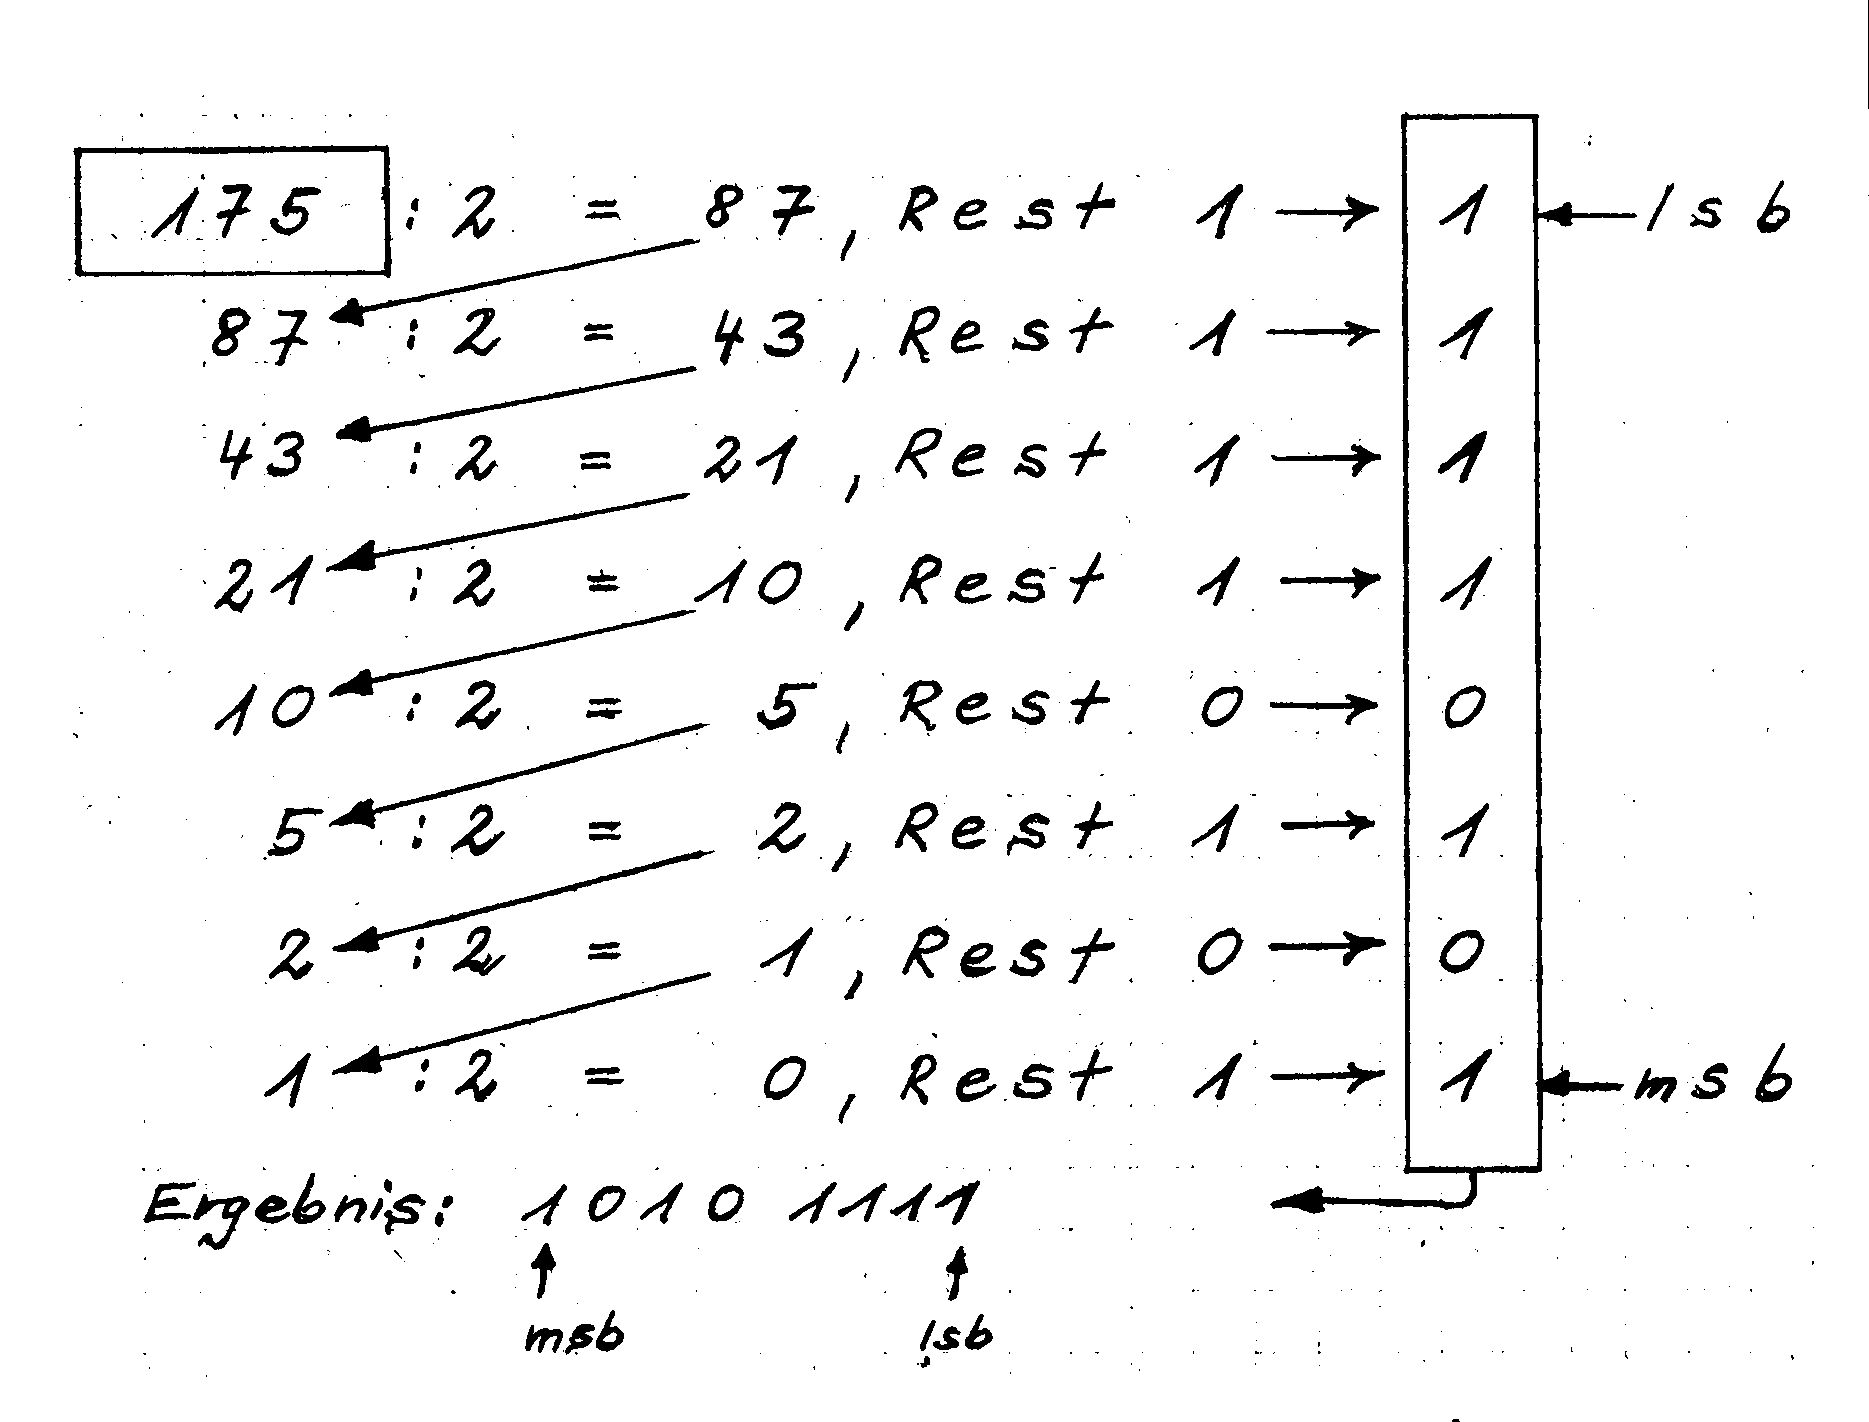 175 : 2 = 87, Rest 1 → 1 ← lsb
87 : 2 = 43, Rest 1 → 1
43 : 2 = 21, Rest 1 → 1
21 : 2 = 10, Rest 1 → 1
10 : 2 = 5, Rest 0 → 0
5 : 2 = 2, Rest 1 → 1
2 : 2 = 1, Rest 0 → 0
1 : 2 = 0, Rest 1 → 1 ← msb
Ergebnis: 1010 1111
msb lsb